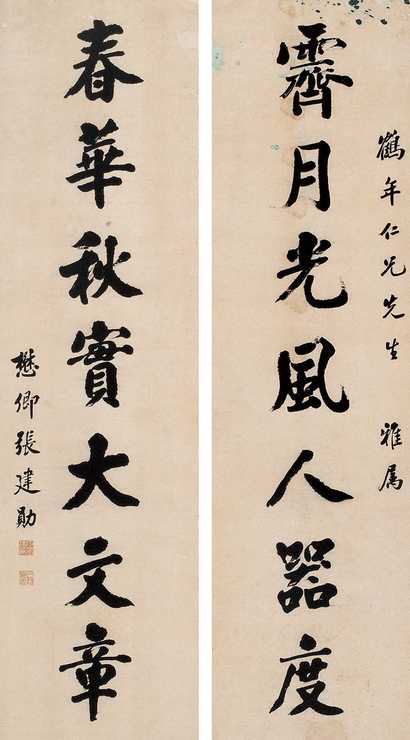 鶴年仁兄先生 雅属
霽月光風人器度
春華秋實大文章
懋卿張建勛